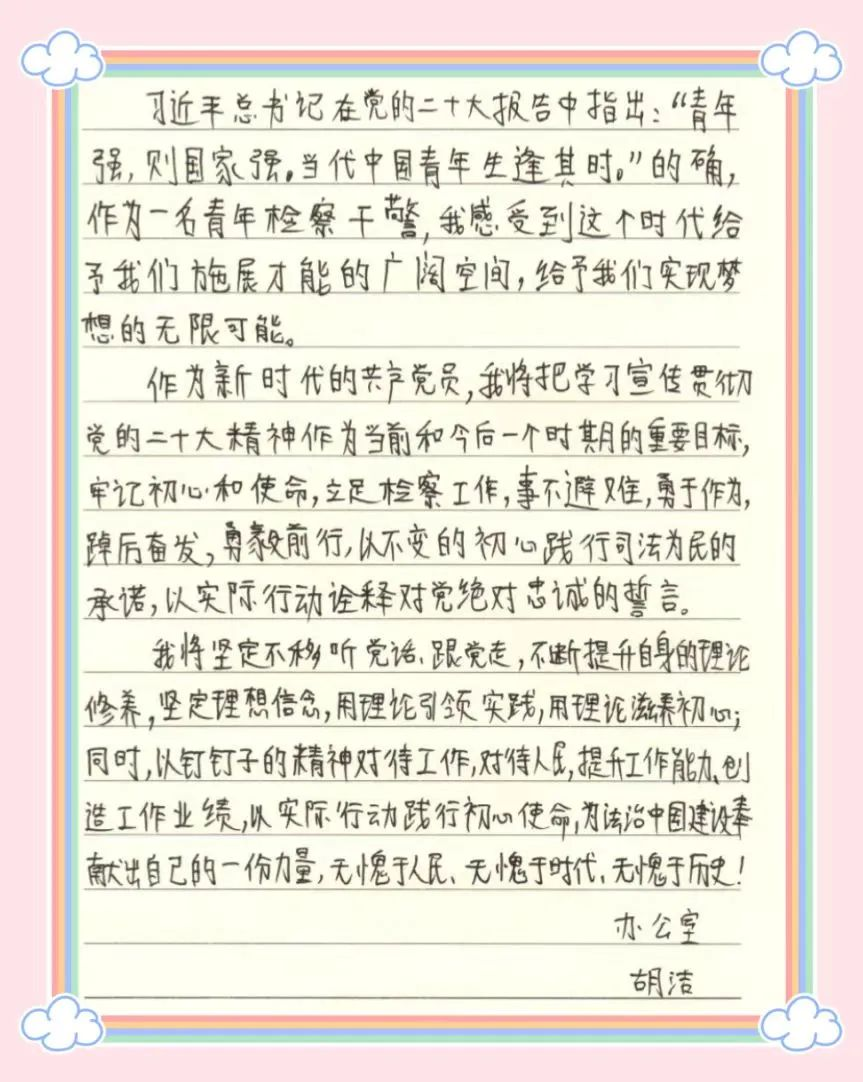 习近平总书记在党的二十大报告中指出：“青年
强，则国家强。当代中国青年生逢其时。”的确，
作为一名青年检察干警，我感受到这个时代给
予我们施展才能的广阔空间，给予我们实现梦
想的无限可能。
作为新时代的共产党员，我将把学习宣传贯彻
党的二十大精神作为当前和今后一个时期的重要目标，
牢记初心和使命，立足检察工作，事不避难，勇于作为，
踔厉奋发，勇毅前行，以不变的初心践行司法为民的
承诺，以实际行动诠释对党绝对忠诚的誓言。
我将坚定不移听党话、跟党走，不断提升自身的理论
修养，坚定理想信念，用理论引领实践，用理论滋养初心；
同时，以钉钉子的精神对待工作，对待人民，提升工作能力、创
造工作业绩，以实际行动践行初心使命，为法治中国建设奉
献出自己的一份力量，无愧于人民、无愧于时代、无愧于历史！
办公室
胡洁